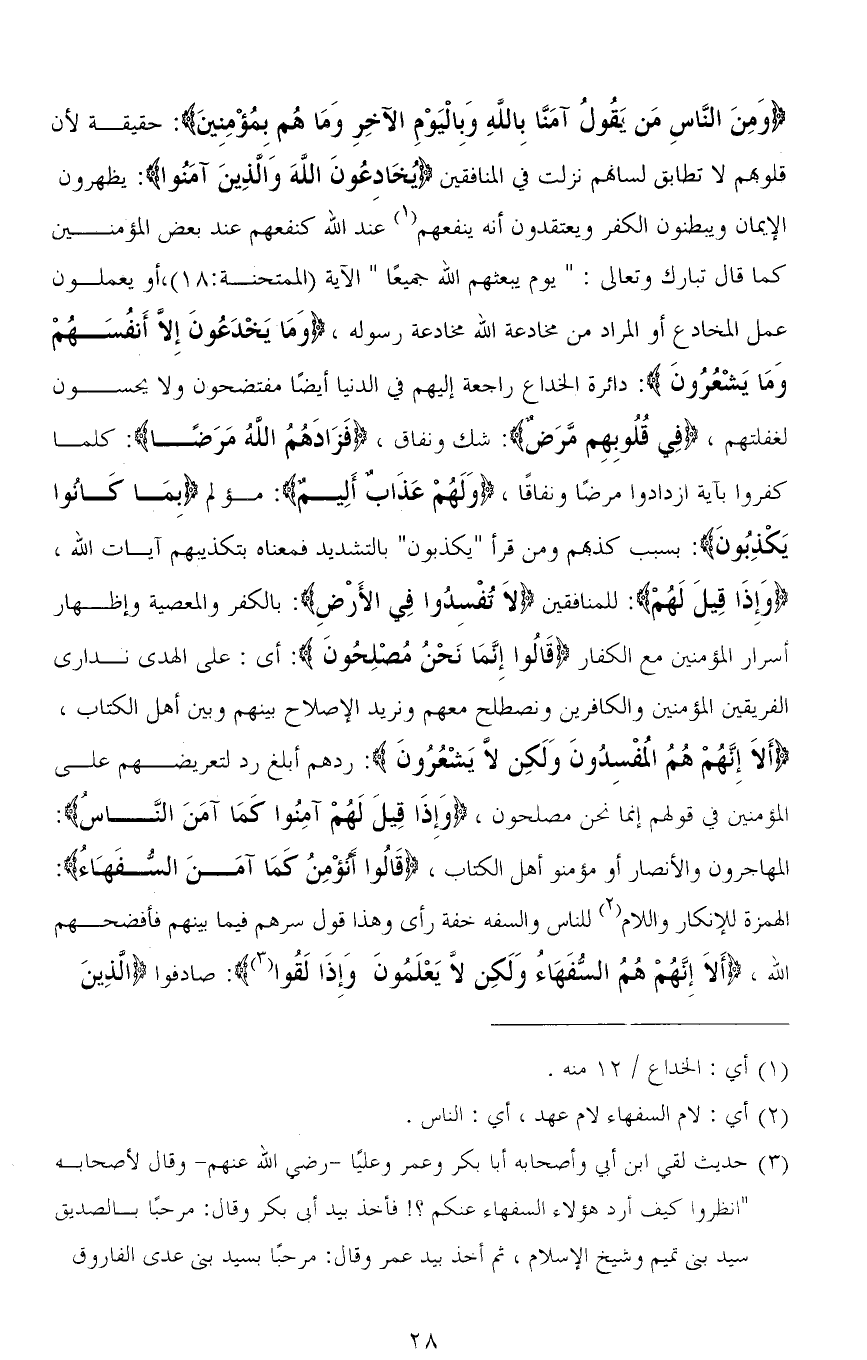 ﴿وَمِنَ النَّاسِ مَن يَقُولُ آمَنَّا بِاللَّهِ وَبِالْيَوْمِ الآخِرِ وَمَا هُم بِمُؤْمِنِينَ﴾: حقيقة لأن
قلوبهم لا تطابق لسانهم نزلت في المنافقين ﴿يُخَادِعُونَ اللَّهَ وَالَّذِينَ آمَنُوا﴾: يظهرون
الإيمان ويبطنون الكفر ويعتقدون أنه ينفعهم(١) عند الله كنفعهم عند بعض المؤمنين
كما قال تبارك وتعالى : " يوم يبعثهم الله جميعًا " الآية (الممتحنة:١٨)،أو يعملون
عمل المخادع أو المراد من مخادعة الله مخادعة رسوله ، ﴿وَمَا يَخْدَعُونَ إِلاَّ أَنفُسَهُمْ
وَمَا يَشْعُرُونَ ﴾: دائرة الخداع راجعة إليهم في الدنيا أيضًا مفتضحون ولا يحسون
لغفلتهم ، ﴿فِي قُلُوبِهِم مَّرَضٌ﴾: شك ونفاق ، ﴿فَزَادَهُمُ اللَّهُ مَرَضًا﴾: كلما
كفروا بآية ازدادوا مرضًا ونفاقًا ، ﴿وَلَهُمْ عَذَابٌ أَلِيمٌ﴾: مؤلم ﴿بِمَا كَانُوا
يَكْذِبُونَ﴾: بسبب كذبهم ومن قرأ "يكذبون" بالتشديد فمعناه بتكذيبهم آيات الله ،
﴿وَإِذَا قِيلَ لَهُمْ﴾: للمنافقين ﴿لاَ تُفْسِدُوا فِي الأَرْضِ﴾: بالكفر والمعصية وإظهار
أسرار المؤمنين مع الكفار ﴿قَالُوا إِنَّمَا نَحْنُ مُصْلِحُونَ ﴾: أى : على الهدى ندارى
الفريقين المؤمنين والكافرين ونصطلح معهم ونريد الإصلاح بينهم وبين أهل الكتاب ،
﴿أَلاَ إِنَّهُمْ هُمُ الْمُفْسِدُونَ وَلَكِن لاَّ يَشْعُرُونَ ﴾: ردهم أبلغ رد لتعريضهم على
المؤمنين في قولهم إنما نحن مصلحون ، ﴿وَإِذَا قِيلَ لَهُمْ آمِنُوا كَمَا آمَنَ النَّاسُ﴾:
المهاجرون والأنصار أو مؤمنو أهل الكتاب ، ﴿قَالُوا أَنُؤْمِنُ كَمَا آمَنَ السُّفَهَاءُ﴾:
الهمزة للإنكار واللام(٢) للناس والسفه خفة رأى وهذا قول سرهم فيما بينهم فأفضحهم
الله ، ﴿أَلاَ إِنَّهُمْ هُمُ السُّفَهَاءُ وَلَكِن لاَّ يَعْلَمُونَ وَإِذَا لَقُوا(٣)﴾: صادفوا ﴿الَّذِينَ
(١) أي : الخداع / ١٢ منه .
(٢) أي : لام السفهاء لام عهد ، أي : الناس .
(٣) حديث لقي ابن أبي وأصحابه أبا بكر وعمر وعليًا -رضي الله عنهم- وقال لأصحابه
"انظروا كيف أرد هؤلاء السفهاء عنكم ؟! فأخذ بيد أبى بكر وقال: مرحبًا بالصديق
سيد بنى تميم وشيخ الإسلام ، ثم أخذ بيد عمر وقال: مرحبًا بسيد بنى عدى الفاروق
٢٨